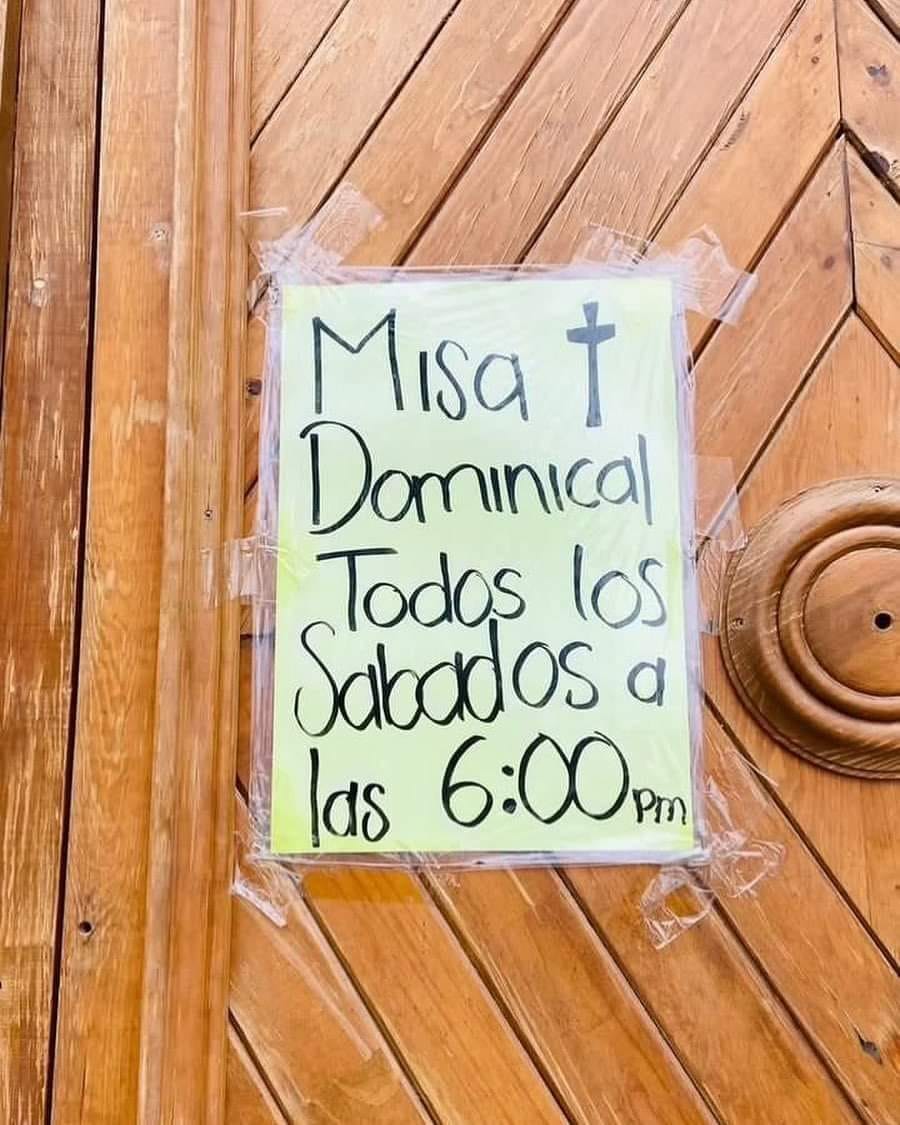 Misa
Dominical
Todos los
Sabados a
las 6:00 pm